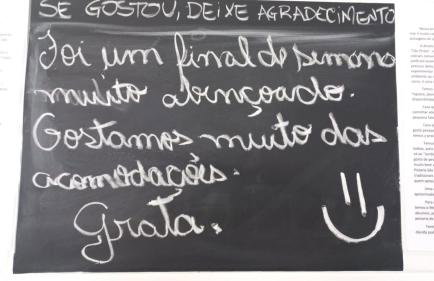 SE GOSTOU, DEIXE AGRADECIMENTO
Foi um final de semana
muito abençoado.
Gostamos muito das
acomodações.
Grata.